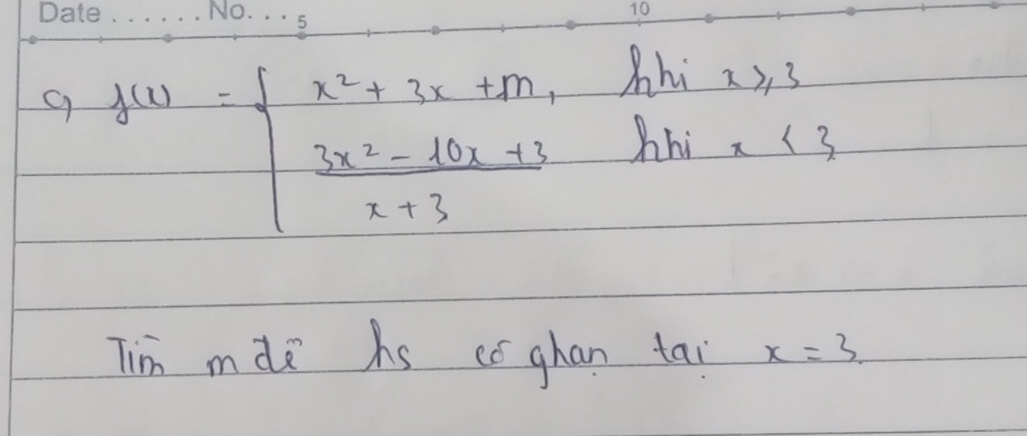 Date ...... No. ... 5 10
c) f(x) = { x² + 3x + m, khi x ≥ 3
3x² - 10x + 3 khi x < 3
x + 3
Tìm m để hs có ghạn tại x = 3